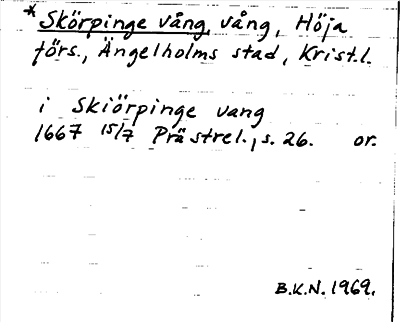 * Skörpinge vång, vång, Höja
förs., Ängelholms stad, Krist.l.
i Skiörpinge vang
1667 15/7 Prästrel., s. 26. or.
B.K.N. 1969.